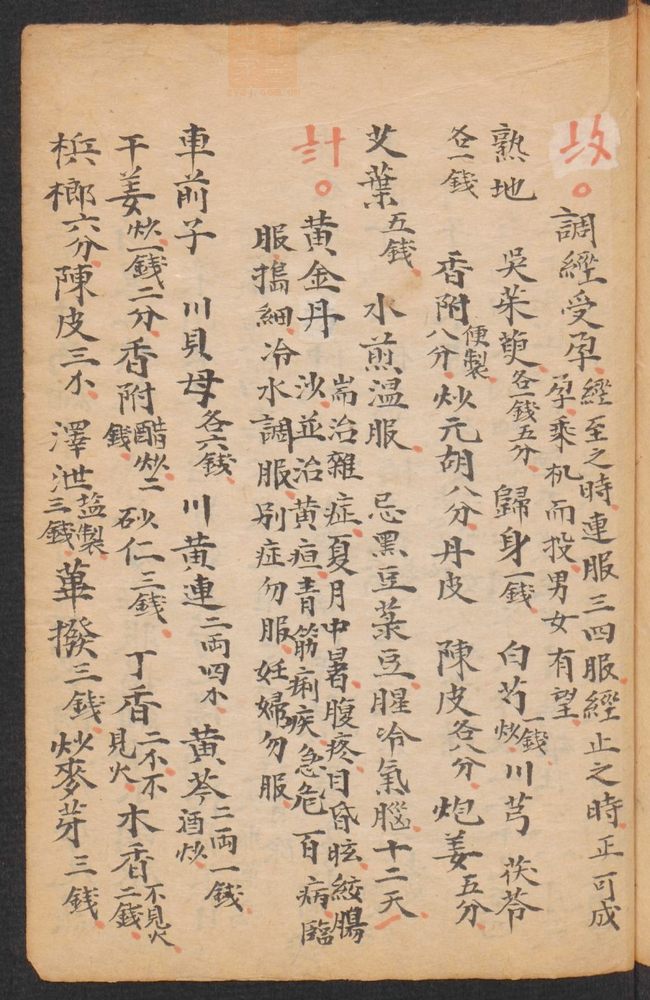 調經受孕 經至之時連服三四服經止之時正可成
孕乘机而投男女有望
熟地 吳茱萸各一錢五分 歸身一錢 白芍一錢炒 川芎 茯苓
各一錢 香附便製八分 炒元胡八分 丹皮 陳皮各八分 炮姜五分
艾葉五錢 水煎温服 忌黑豆菉豆腥冷氣腦十二天
黃金丹 耑治雜症夏月中暑腹疼目昏眩絞腸
沙並治黃疸青筋痢疾急危百病臨
服搗細冷水調服別症勿服妊婦勿服
車前子 川貝母各六錢 川黃連二両四小 黃芩二両一錢酒炒
干姜炒一錢二分 香附醋炒二錢 砂仁三錢 丁香二小不見火 木香不見火二錢
梹榔六分 陳皮三小 澤泄盐製三錢 蓽撥三錢 炒麥芽三錢